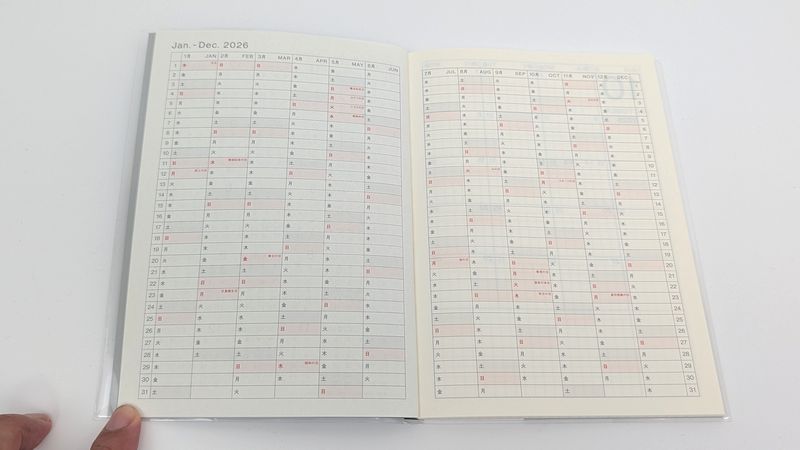 Jan. - Dec. 2026
1月 JAN 2月 FEB 3月 MAR 4月 APR 5月 MAY 6月 JUN
1 木 日 日 水 金 月
2 金 月 月 木 土 火
3 土 火 火 金 日 水
4 日 水 水 土 月 木
5 月 木 木 日 火 金
6 火 金 金 月 水 土
7 水 土 土 火 木 日
8 木 日 日 水 金 月
9 金 月 月 木 土 火
10 土 火 火 金 日 水
11 日 水 水 土 月 木
12 月 木 木 日 火 金
13 火 金 金 月 水 土
14 水 土 土 火 木 日
15 木 日 日 水 金 月
16 金 月 月 木 土 火
17 土 火 火 金 日 水
18 日 水 水 土 月 木
19 月 木 木 日 火 金
20 火 金 金 月 水 土
21 水 土 土 火 木 日
22 木 日 日 水 金 月
23 金 月 月 木 土 火
24 土 火 火 金 日 水
25 日 水 水 土 月 木
26 月 木 木 日 火 金
27 火 金 金 月 水 土
28 水 土 土 火 木 日
29 木 日 水 金 月
30 金 月 木 土 火
31 土 火 日
7月 JUL 8月 AUG 9月 SEP 10月 OCT 11月 NOV 12月 DEC
水 土 火 木 日 火 1
木 日 水 金 月 水 2
金 月 木 土 火 木 3
土 火 金 日 水 金 4
日 水 土 月 木 土 5
月 木 日 火 金 日 6
火 金 月 水 土 月 7
水 土 火 木 日 火 8
木 日 水 金 月 水 9
金 月 木 土 火 木 10
土 火 金 日 水 金 11
日 水 土 月 木 土 12
月 木 日 火 金 日 13
火 金 月 水 土 月 14
水 土 火 木 日 火 15
木 日 水 金 月 水 16
金 月 木 土 火 木 17
土 火 金 日 水 金 18
日 水 土 月 木 土 19
月 木 日 火 金 日 20
火 金 月 水 土 月 21
水 土 火 木 日 火 22
木 日 水 金 月 水 23
金 月 木 土 火 木 24
土 火 金 日 水 金 25
日 水 土 月 木 土 26
月 木 日 火 金 日 27
火 金 月 水 土 月 28
水 土 火 木 日 火 29
木 日 水 金 月 水 30
金 月 土 木 31